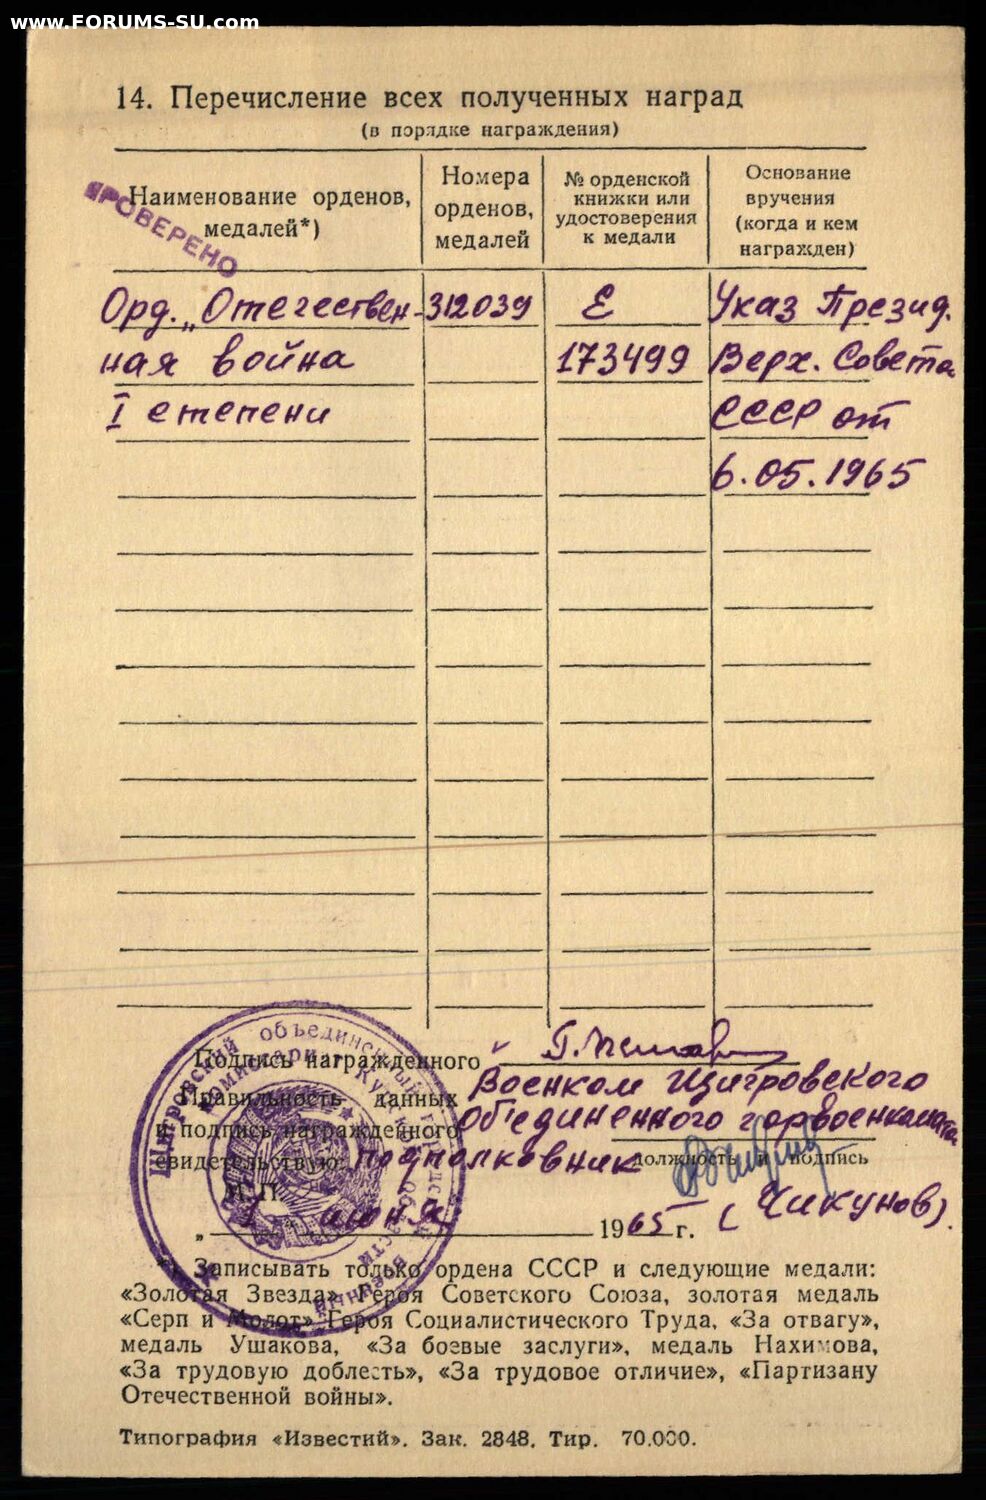 www.FORUMS-SU.com
14. Перечисление всех полученных наград
(в порядке награждения)
ПРОВЕРЕНО
Наименование орденов, медалей*)
Номера орденов, медалей
№ орденской книжки или удостоверения к медали
Основание вручения (когда и кем награжден)
Орд. „Отечествен- 312039 Е Указ Презид.
ная война 173499 Верх. Совета
I степени СССР от
6.05.1965
Подпись награжденного
Военком Щигровского
Правильность данных объединенного горвоенкомата
и подпись награжденного
свидетельствую: подполковник должность и подпись
М.П.
„ июня 1965 г. (Чикунов).
Щигровский объединенный
*) Записывать только ордена СССР и следующие медали:
«Золотая Звезда» Героя Советского Союза, золотая медаль
«Серп и Молот» Героя Социалистического Труда, «За отвагу»,
медаль Ушакова, «За боевые заслуги», медаль Нахимова,
«За трудовую доблесть», «За трудовое отличие», «Партизану
Отечественной войны».
Типография «Известий». Зак. 2848. Тир. 70.000.